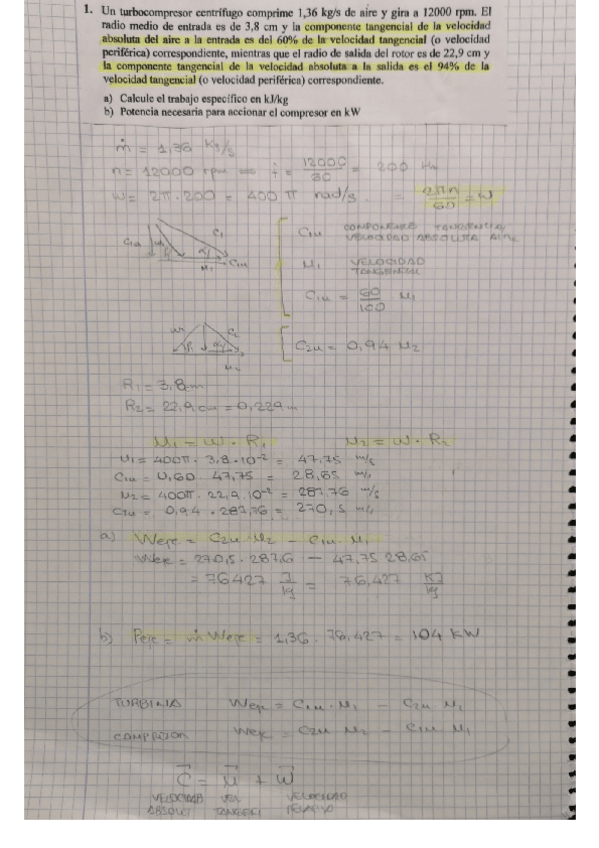 1. Un turbocompresor centrífugo comprime 1,36 kg/s de aire y gira a 12000 rpm. El
radio medio de entrada es de 3,8 cm y la componente tangencial de la velocidad
absoluta del aire a la entrada es del 60% de la velocidad tangencial (o velocidad
periférica) correspondiente, mientras que el radio de salida del rotor es de 22,9 cm y
la componente tangencial de la velocidad absoluta a la salida es el 94% de la
velocidad tangencial (o velocidad periférica) correspondiente.
a) Calcule el trabajo específico en kJ/kg
b) Potencia necesaria para accionar el compresor en kW
ṁ = 1,36 Kg/s
n = 12000 rpm => f = 12000/60 = 200 Hz
W = 2π · 200 = 400 π rad/s = 2πn/60 = W
C1a C1 α1 M1 C1u
C1u COMPONENTE TANGENCIAL
VELOCIDAD ABSOLUTA AIRE
M1 VELOCIDAD
TANGENCIAL
C1u = 60/100 M1
C2
C2u = 0,94 M2
R1 = 3,8 cm
R2 = 22,9 cm = 0,229 m
M1 = W · R1 M2 = W · R2
M1 = 400π · 3,8 · 10⁻² = 47,75 m/s
C1u = 0,60 · 47,75 = 28,65 m/s
M2 = 400π · 22,9 · 10⁻² = 287,76 m/s
C2u = 0,94 · 287,76 = 270,5 m/s
a) Weje = C2u · M2 - C1u · M1
Weje = 270,5 · 287,6 - 47,75 28,65
= 76427 J/kg = 76,427 KJ/kg
b) Peje = ṁ Weje = 1,36 · 76,427 = 104 KW
TURBINA Weje = C1u · M1 - C2u M2
COMPRESOR Weje = C2u M2 - C1u M1
C = M + W
VELOCIDAD VEL VELOCIDAD